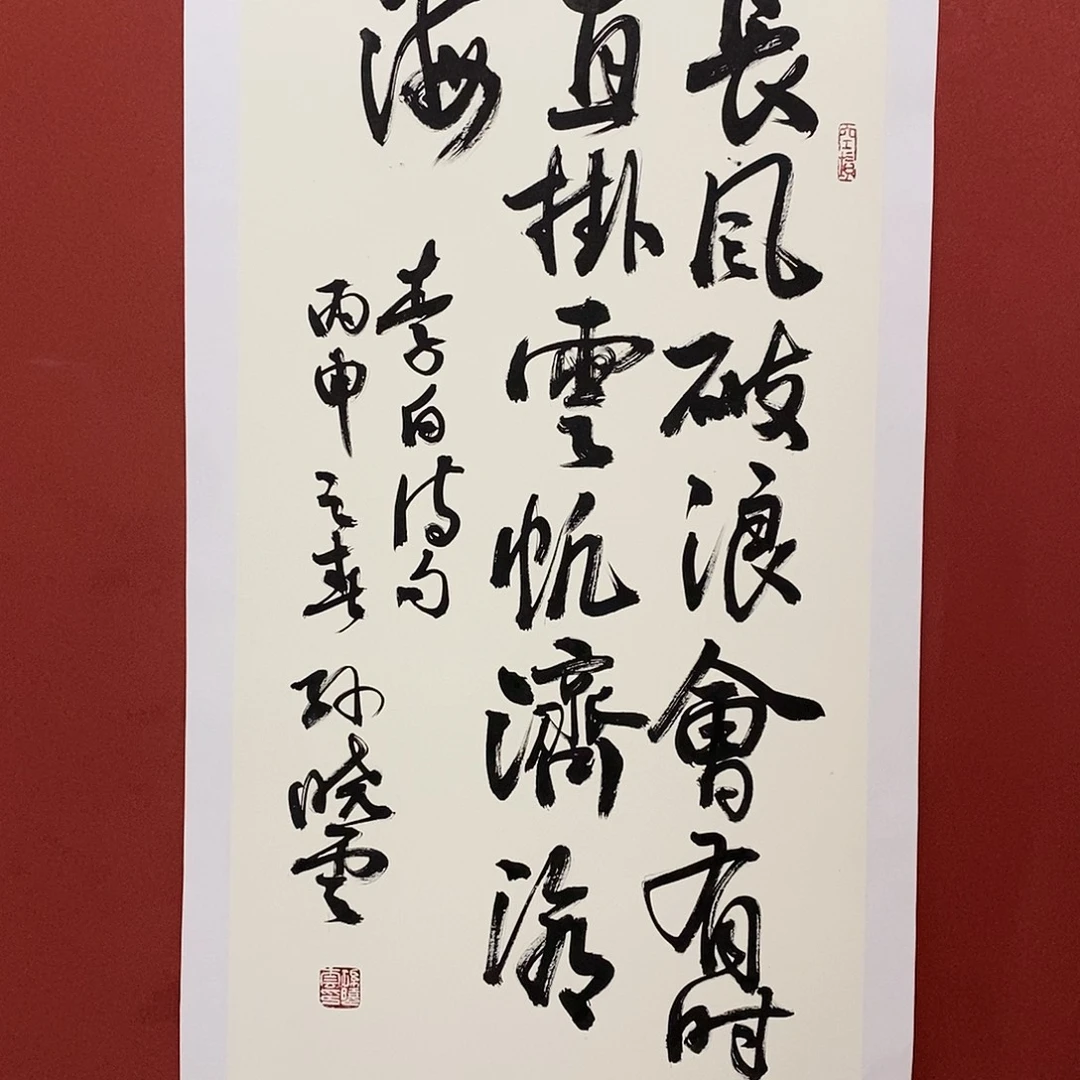 長風破浪會有时
直掛雲帆濟滄
海
李白诗句
丙申之春 孙晓雲